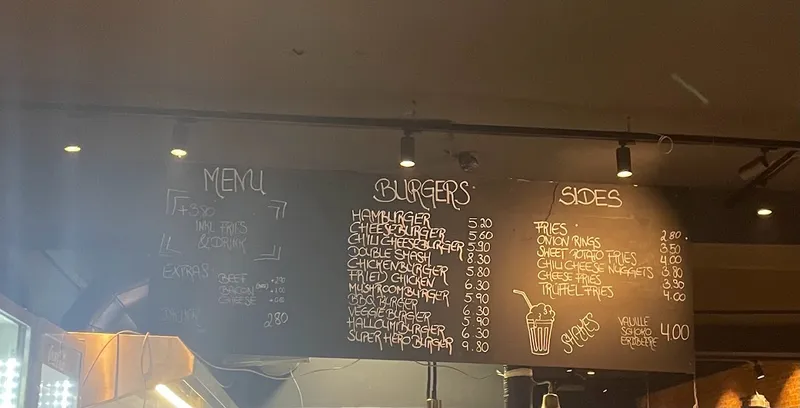 MENU
+3.50
INKL. FRIES
& DRINK
EXTRAS
BEEF
BACON
CHEESE
2.80
BURGERS
HAMBURGER 5.20
CHEESEBURGER 5.60
CHILI CHEESEBURGER 5.90
DOUBLE SMASH 8.30
CHICKENBURGER 5.80
FRIED CHICKEN 6.30
MUSHROOMBURGER 5.90
BBQ BURGER 6.30
VEGGIE BURGER 5.90
HALLOUMIBURGER 6.30
SUPER HERO BURGER 9.80
SIDES
FRIES 2.80
ONION RINGS 3.50
SWEET POTATO FRIES 4.00
CHILI CHEESE NUGGETS 3.80
CHEESE FRIES 3.90
TRÜFFEL FRIES 4.00
SHAKES
VANILLE
SCHOKO 4.00
ERDBEERE